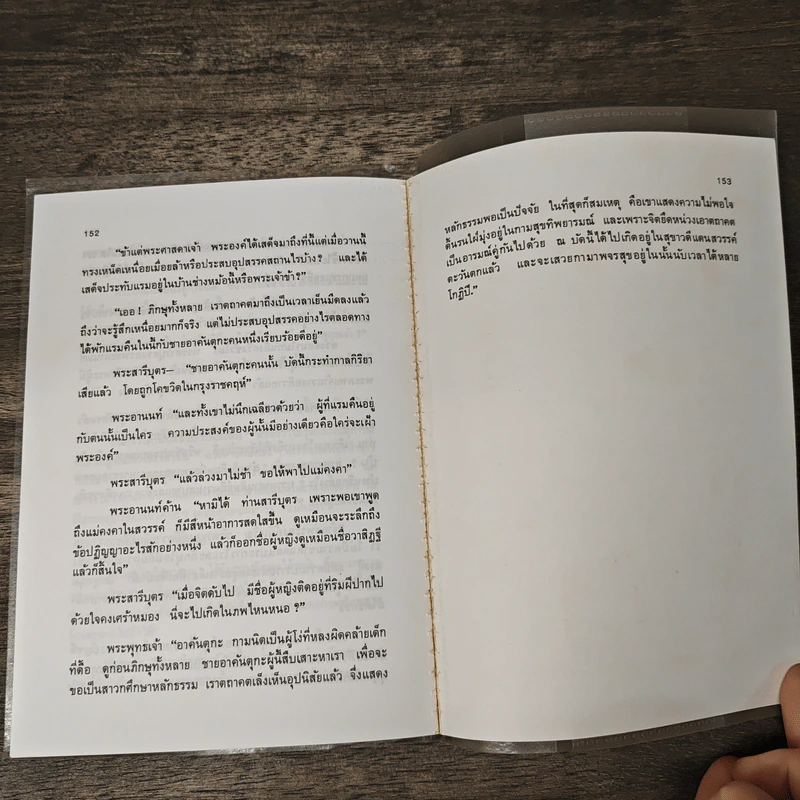 152
“ข้าแต่พระศาสดาเจ้า พระองค์ได้เสด็จมาถึงที่นี้แต่เมื่อวานนี้
ทรงเหน็ดเหนื่อยเมื่อยล้าหรือประสบอุปสรรคสถานไรบ้าง? และได้
เสด็จประทับแรมอยู่ในบ้านช่างหม้อนี้หรือพระเจ้าข้า?”
“เออ! ภิกษุทั้งหลาย เราตถาคตมาถึงเป็นเวลาเย็นมืดลงแล้ว
ถึงว่าจะรู้สึกเหนื่อยมากก็จริง แต่ไม่ประสบอุปสรรคอย่างไรตลอดทาง
ได้พักแรมคืนในนี้กับชายอาคันตุกะคนหนึ่งเรียบร้อยดีอยู่”
พระสารีบุตร— “ชายอาคันตุกะคนนั้น บัดนี้กระทำกาลกิริยา
เสียแล้ว โดยถูกโคขวิดในกรุงราชคฤห์”
พระอานนท์ “และทั้งเขาไม่นึกเฉลียวด้วยว่า ผู้ที่แรมคืนอยู่
กับตนนั้นเป็นใคร ความประสงค์ของผู้นั้นมีอย่างเดียวคือใคร่จะเฝ้า
พระองค์”
พระสารีบุตร “แล้วล่วงมาไม่ช้า ขอให้พาไปแม่คงคา”
พระอานนท์ค้าน “หามิได้ ท่านสารีบุตร เพราะพอเขาพูด
ถึงแม่คงคาในสวรรค์ ก็มีสีหน้าอาการสดใสขึ้น ดูเหมือนจะระลึกถึง
ข้อปฏิญญาอะไรสักอย่างหนึ่ง แล้วก็ออกชื่อผู้หญิงดูเหมือนชื่อวาสิฏฐี
แล้วก็สิ้นใจ”
พระสารีบุตร “เมื่อจิตดับไป มีชื่อผู้หญิงติดอยู่ที่ริมฝีปากไป
ด้วยใจคงเศร้าหมอง นี่จะไปเกิดในภพไหนหนอ ?”
พระพุทธเจ้า “อาคันตุกะ กามนิตเป็นผู้โง่ที่หลงผิดคล้ายเด็ก
ที่ดื้อ ดูก่อนภิกษุทั้งหลาย ชายอาคันตุกะผู้นี้สืบเสาะหาเรา เพื่อจะ
ขอเป็นสาวกศึกษาหลักธรรม เราตถาคตเล็งเห็นอุปนิสัยแล้ว จึ่งแสดง
153
หลักธรรมพอเป็นปัจจัย ในที่สุดก็สมเหตุ คือเขาแสดงความไม่พอใจ
ดิ้นรนใฝ่มุ่งอยู่ในกามสุขทิพยารมณ์ และเพราะจิตยึดหน่วงเอาตถาคต
เป็นอารมณ์คู่กันไปด้วย ณ บัดนี้ได้ไปเกิดอยู่ในสุขาวดีแดนสวรรค์
ตะวันตกแล้ว และจะเสวยกามาพจรสุขอยู่ในนั้นนับเวลาได้หลาย
โกฏิปี.”